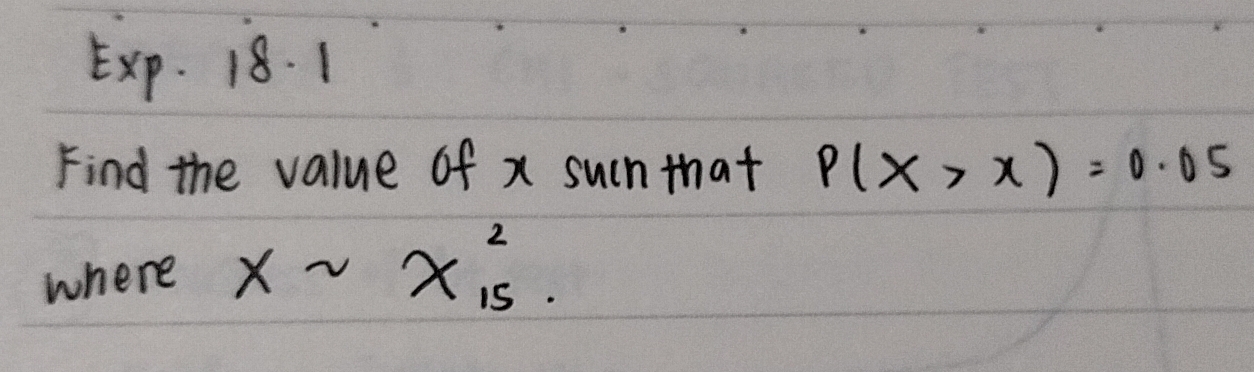 Exp. 18.1
Find the value of x such that P(X > x) = 0.05
where X ~ χ²₁₅.